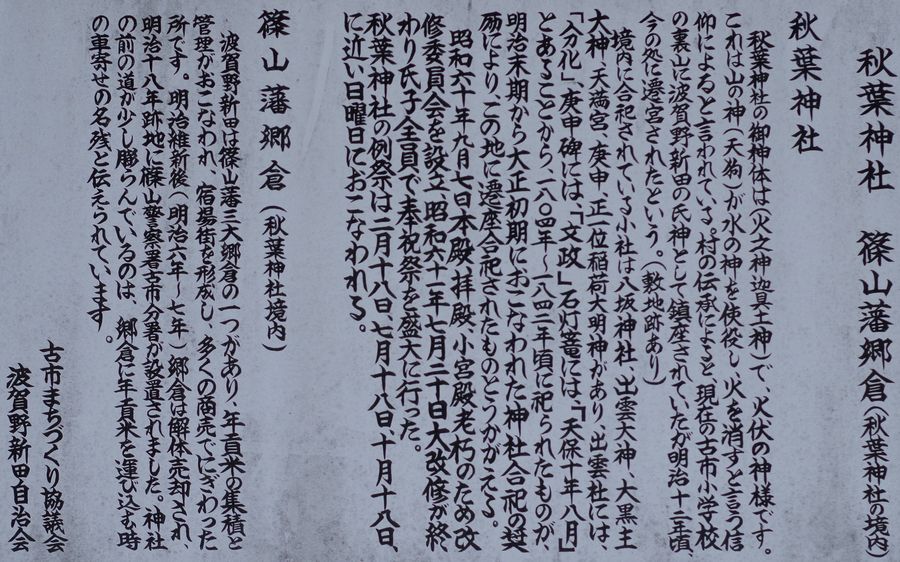 秋葉神社　篠山藩郷倉(秋葉神社の境内)
秋葉神社
秋葉神社の御神体は(火之神迦具土神)で、火伏の神様です。
これは山の神(天狗)が水の神を使役し、火を消すと言う信
仰によると言われている。村の伝承によると現在の古市小学校
の裏山に波賀野新田の氏神として鎮座されていたが明治十二年頃、
今の処に遷宮されたという。(敷地跡あり)
境内に合祀されている小社は八坂神社、出雲大神、大黒主
大神、天満宮、庚申、正一位稲荷大明神があり、出雲社には、
「文化」、庚申碑には、「文政」石灯篭には、「天保十年八月」
とあることから、一八〇四年〜一八四二年頃に祀られたものが、
明治末期から大正初期におこなわれた神社合祀の奨
励により、この地に遷座合祀されたものとうかがえる。
昭和六十年九月七日本殿、拝殿、小宮殿老朽のため改
修委員会を設立、昭和六十一年七月二十日大改修が終
わり氏子全員で奉祝祭を盛大に行った。
秋葉神社の例祭は二月十八日、七月十八日、十月十八日、
に近い日曜日におこなわれる。
篠山藩郷倉(秋葉神社境内)
波賀野新田は篠山藩三大郷倉の一つがあり、年貢米の集積と
管理がおこなわれ、宿場街を形成し、多くの商売でにぎわった
所です。明治維新後(明治六年〜七年)郷倉は解体売却され、
明治十八年跡地に篠山警察署古市分署が設置されました。神社
の前の道が少し膨らんでいるのは、郷倉に年貢米を運び込む時
の車寄せの名残と伝えられています。
古市まちづくり協議会
波賀野新田自治会